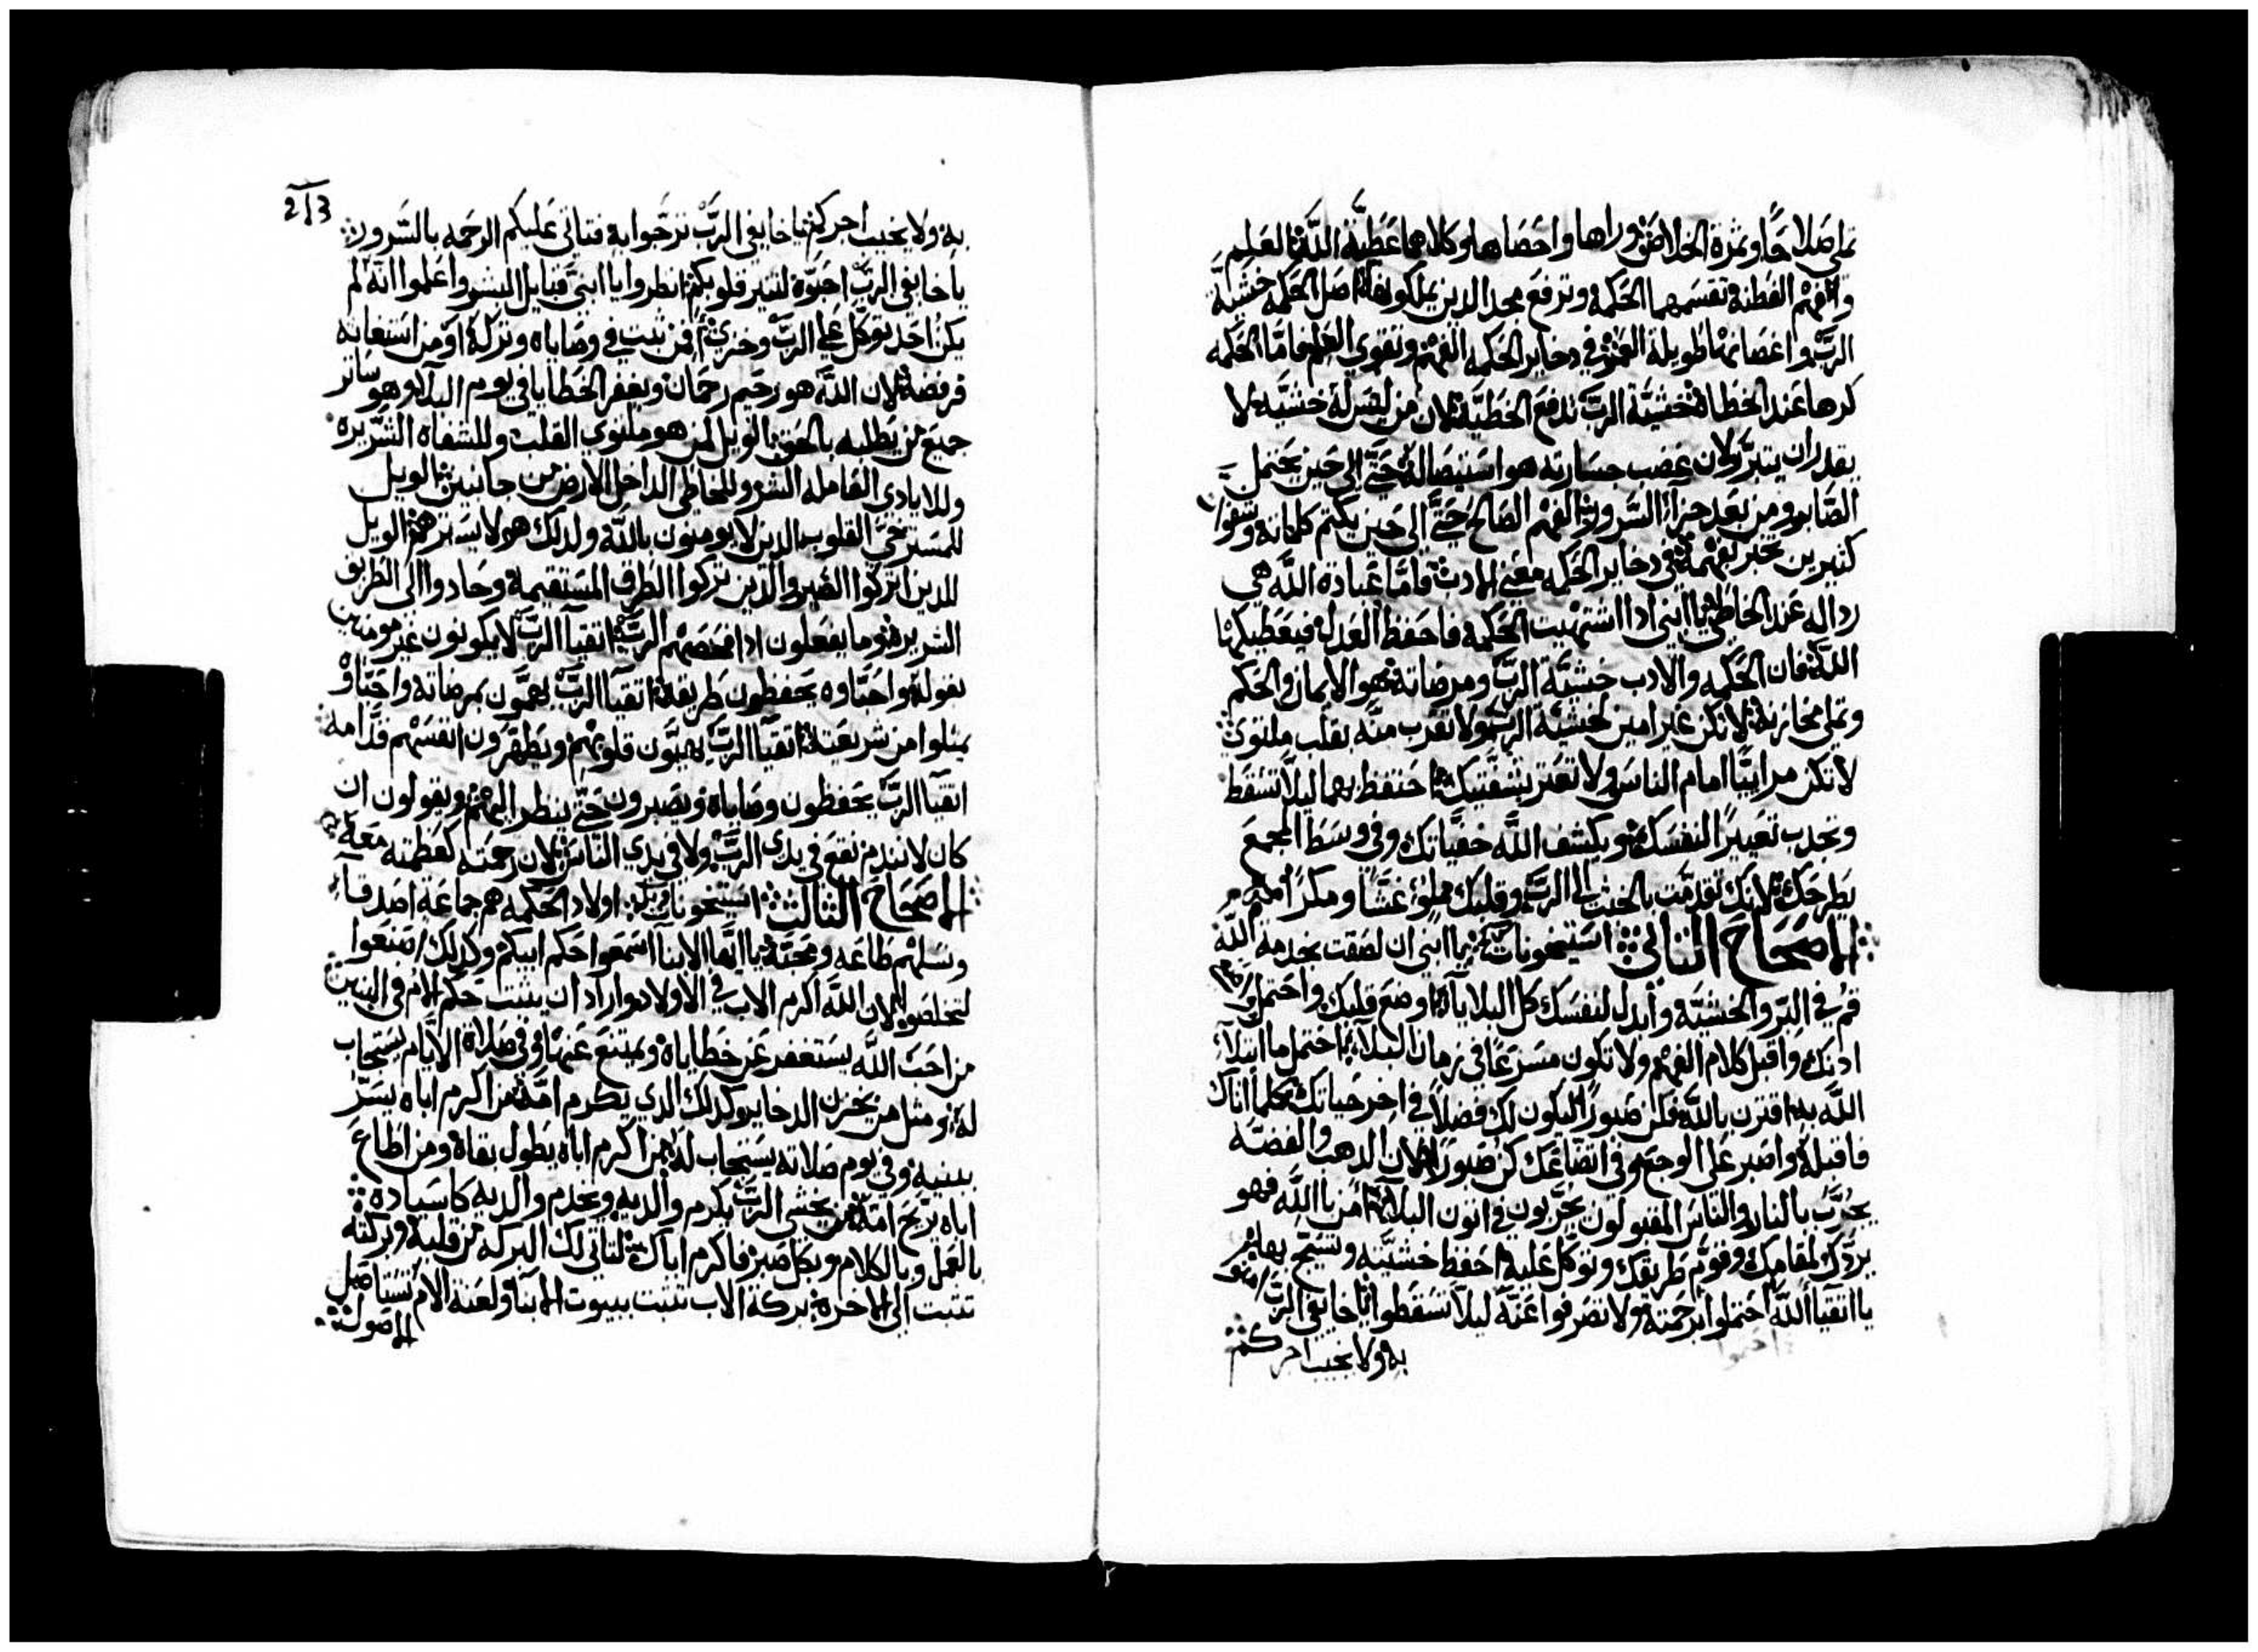 تملي صلاحًا وثمرة الخلاص وراها واحصاها وكلاهما عطية الله العلم
وافهم الفطنة تقسمهما الحكمة وترفع مجد الدين يملكونها اصل الحكمه خشية
الرب واغصانها طويلة العمر في دخاير الحكمه الفهم وتقوي العلم فامّا الحكمه
كرها عند الخطاة خشية الرب تدفع الخطيّة لان من ليس له خشيّة لا
يقدر ان يتبرر لان غضب جسارته هو استيصاله حتّي الي حين يحتمل
الصابر ومن بعد جزآ السرور والفهم الصالح حتّي الي حين يكتم كلماته وشفوات
كثيرين تخبر بفهمه في دخاير الحكمه معني الادب فامّا عبادة الله هي
رداله عند الخاطي يا ابني ادا اشتهيت الحكمه فاحفظ العدل فيعطيكها
اللّه فان الحكمه والادب خشية الرب ومرضاته فهو الايمان والحكم
وتملي مخازنه لا تكن غير امين لخشية الرب ولا تقرب منه بقلب ملتوي
لا تكن مراييًا امام الناس ولا تعتر بشفتيك احتفظ بهما ليلا تسقط
وتجدب تعييرًا لنفسك ويكشف اللّه خفيّاتك وفي وسط المجمع
يطرحك لانك تقدمت بالخبث الي الرب وقلبك مملو غشّا ومكرًا
الاصحاح الثاني يا ابني ان لصقت بخدمه اللّه
قم في البر والخشية وأبدل لنفسك كل البلايا اوضع قلبك واحتمل وامل
ادنك واقبل كلام الفهم ولا تكون مسرعًا في زمان البلاء احتمل ما ابتلاك
اللّه به اقترن باللّه فكن صبورًا ليكون لك فضلاً في اخر حياتك كلما اتاك
فاقبله واصبر علي الوجع وفي اتضاعك كن صبورًا لان الدهب والفضة
يجرّب بالنار والناس المقبولون يجربون في اتون البلا امن باللّه فهو
يردّك لمقامك وقوّم طريقك وتوكل عليه احفظ خشيته وتشيخ بها
يا اتقيآ اللّه احتملوا برحمته ولا تصرفوا عنه ليلا تسقطوا يا خايفي الرب
به ولا يخيب اجركم
213
به ولا يخيب اجركم يا خايفي الرب ترجّوا به فتاتي عليكم الرحمه بالسّرور
يا خايفي الرب احبّوه لتنير قلوبكم انظروا يا ابني قبايل البشر واعلموا انّه لم
يكن احد توكل علي الرب وخزي فمن ثبت في وصاياه وتركه او من استعانه
فرفضه لان اللّه هو رحيم رحمان ويغفر الخطايا في يوم البلا وهو ساتر
جميع من يطلبه بالحق الويل لمن هو ملتوي القلب وللشفاه الشريره
وللايادي الفاعله الشر وللخاطي الداخل الارض من جانبين الويل
للمسترخيّ القلوب الدين لا يومنون باللّه ولدلك هو لا يسترهم الويل
للدين اتركوا الصبر والدين تركوا الطرق المستقيمة وحادوا الي الطريق
الشريره وما يفعلون ادا افحصهم الرب اتقيآ الرب لا يكونون غير مومنين
بقوله واحبّاوه يحفظون طريقه اتقيآ الرب يهمّون بمرضاته واحبّاوه
يمتلوا من شريعته اتقيآ الرب يهيّون قلوبهم ويطهّرون انفسهم قدّامه
اتقيآ الرب يحفظون وصاياه ويصبرون حتّي ينظر اليهم ويقولون ان
كان لا نندم نقع في يدي الرب ولا في يدي الناس لان رحمته كعظمته معه
الاصحاح الثالث اولاد الحكمه هم جماعة اصدقآ
ونسلهم طاعه ومحبّة يا ايّها الابنآ اسمعوا حكم ابيكم وكدلك اصنعوا
لتخلصوا لان اللّه اكرم الاب في الاولاد واراد ان يثبت حكم الام في البنين
من احب اللّه يستغفر عن خطاياه ويمتنع عنها وفي صلاة الايّام يستجاب
له ومثل من يخزن الدخاير كدلك الدي يكرم امّه من اكرم اباه يسرّ
ببنيه وفي يوم صلاته يستجاب له من اكرم اباه يطول بقاه ومن اطاع
اباه يريح امّه من يخشي الرب يكرم والديه ويخدم والديه كاسياده
بالعمل وبالكلام وبكل صبر فاكرم اباك لتاتي لك البركه من قلبه وبركته
تثبت الي الاخره بركة الاب تثبت بيوت الابنآ ولعنة الام تستاصل
الاصول